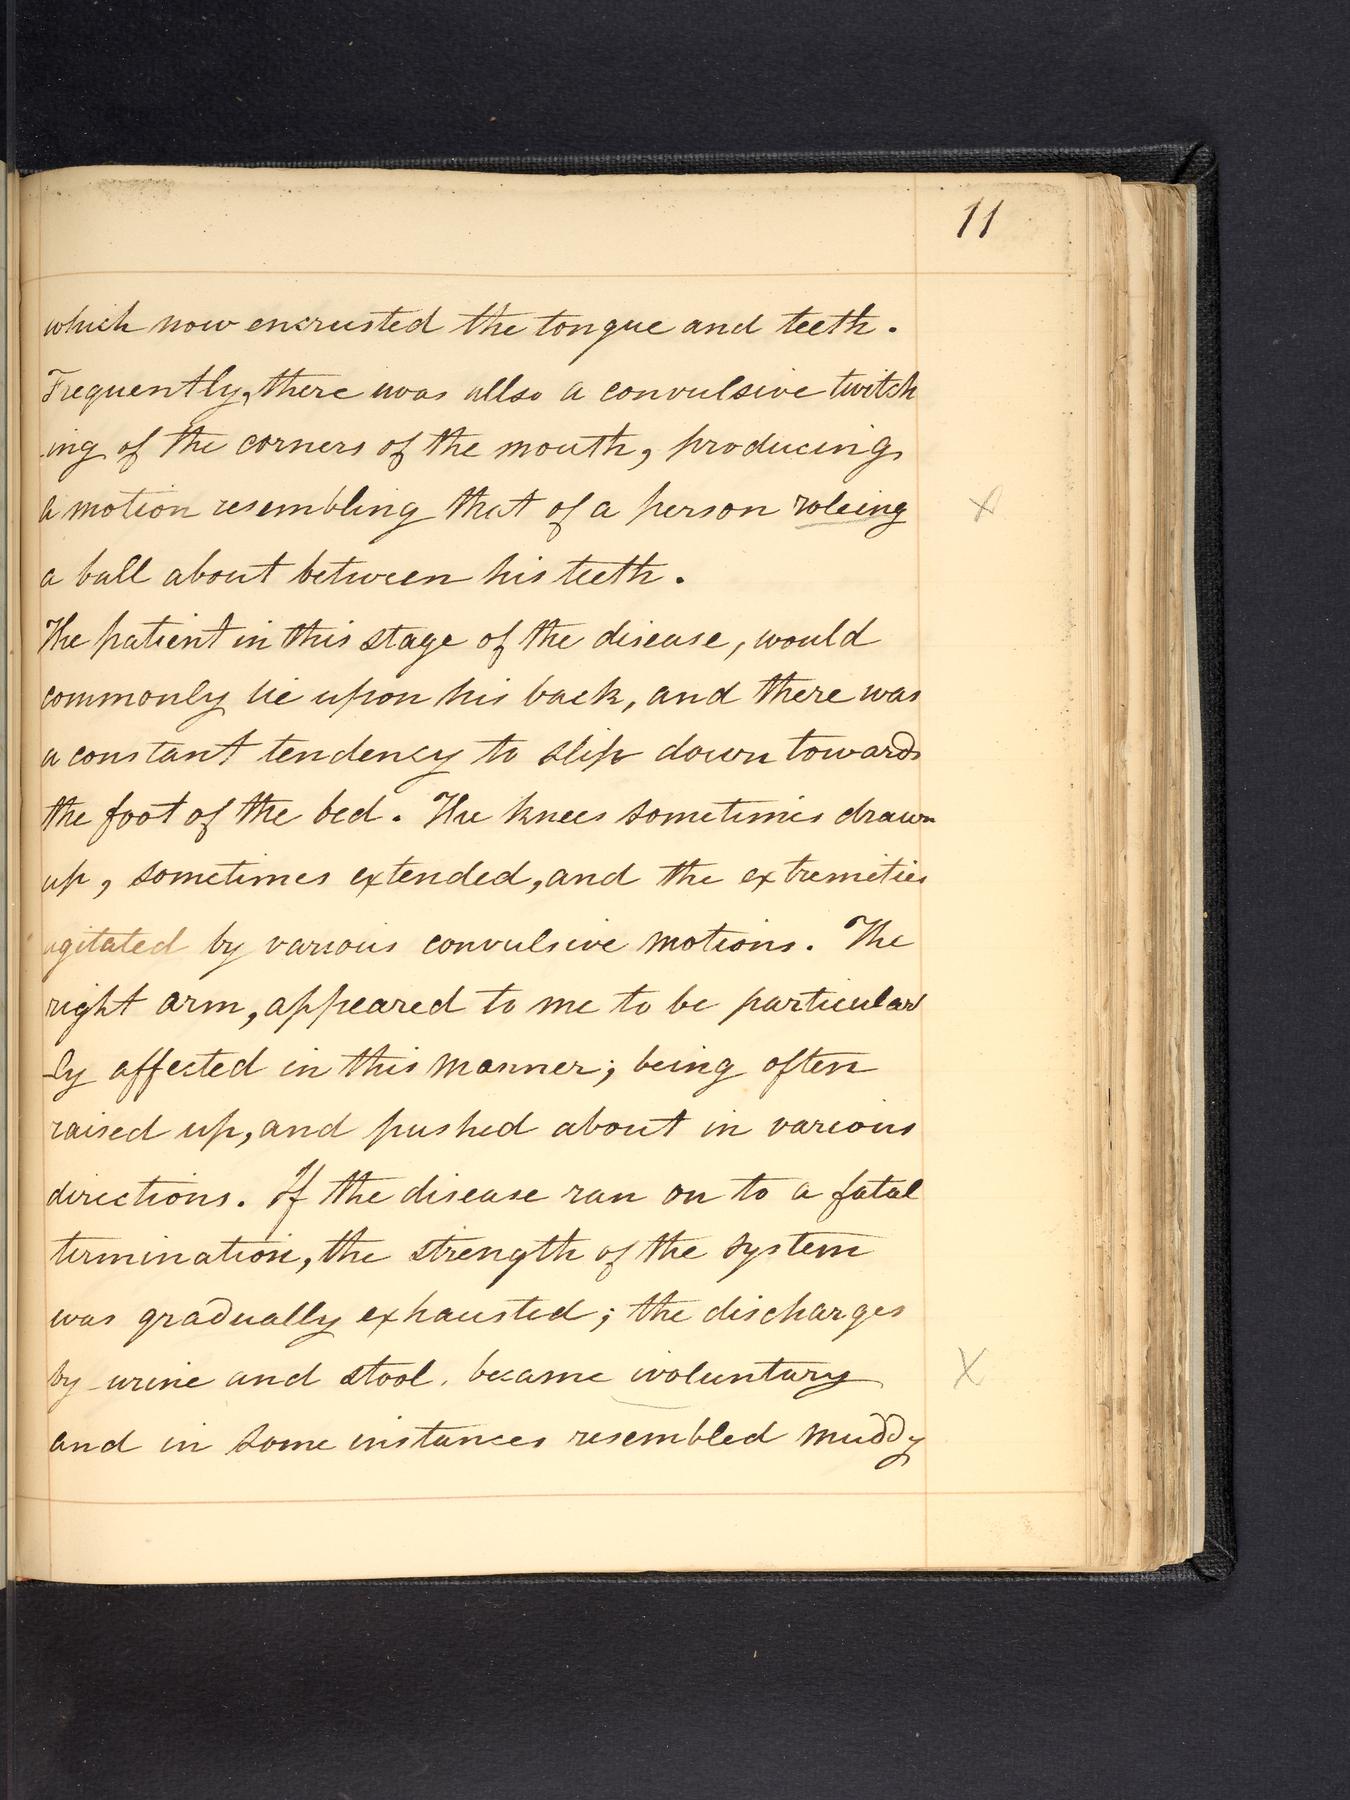 11
which now encrusted the tongue and teeth.
Frequently, there was allso a convulsive twitch
-ing of the corners of the mouth, producing
a motion resembling that of a person roleing X
a ball about between his teeth.
The patient in this stage of the disease, would
commonly lie upon his back, and there was
a constant tendency to slip down towards
the foot of the bed. The knees sometimes drawn
up, sometimes extended, and the extremities
agitated by various convulsive motions. The
right arm, appeared to me to be particular
-ly affected in this manner; being often
raised up, and pushed about in various
directions. If the disease ran on to a fatal
termination, the strength of the system
was gradually exhausted; the discharges
by urine and stool. became ivoluntary X
and in some instances resembled muddy